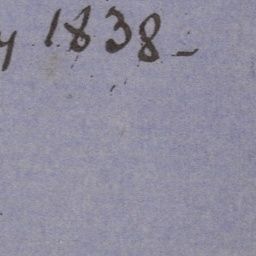 y 1838_